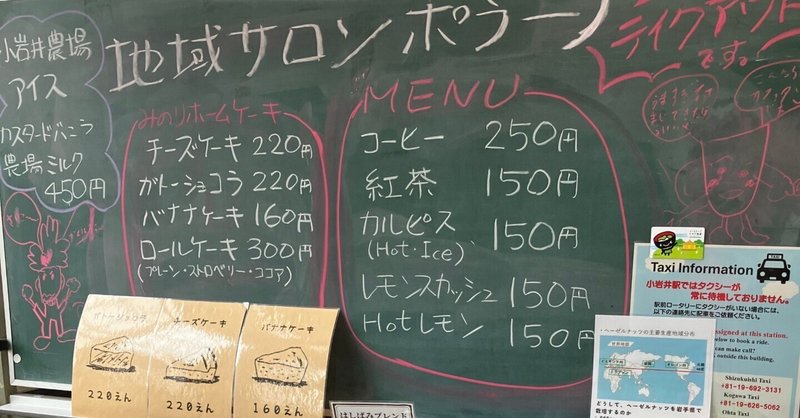 小岩井農場
アイス
カスタードバニラ
農場ミルク
450円
地域サロンポラーノ
テイクアウト
です。
みのりホームケーキ
チーズケーキ 220円
ガトーショコラ 220円
バナナケーキ 160円
ロールケーキ 300円
(プレーン・ストロベリー・ココア)
MENU
コーヒー 250円
紅茶 150円
カルピス 150円
(Hot・Ice)
レモンスカッシュ 150円
Hotレモン 150円
ガトーショコラ
220えん
チーズケーキ
220えん
バナナケーキ
160えん
はしばみブレンド
・ヘーゼルナッツの主要生産地域分布
どうして、ヘーゼルナッツを岩手県で
栽培するのか
Taxi Information
TAXI
小岩井駅ではタクシーが
常に待機しておりません。
駅前ロータリーにタクシーがいない場合には、
以下の連絡先に配車をご依頼ください。
signed at this station.
below to book a ride.
can make call?
outside this building.
Shizukuishi Taxi
+81-19-692-3131
Kogawa Taxi
+81-19-626-5062
Ohta Taxi